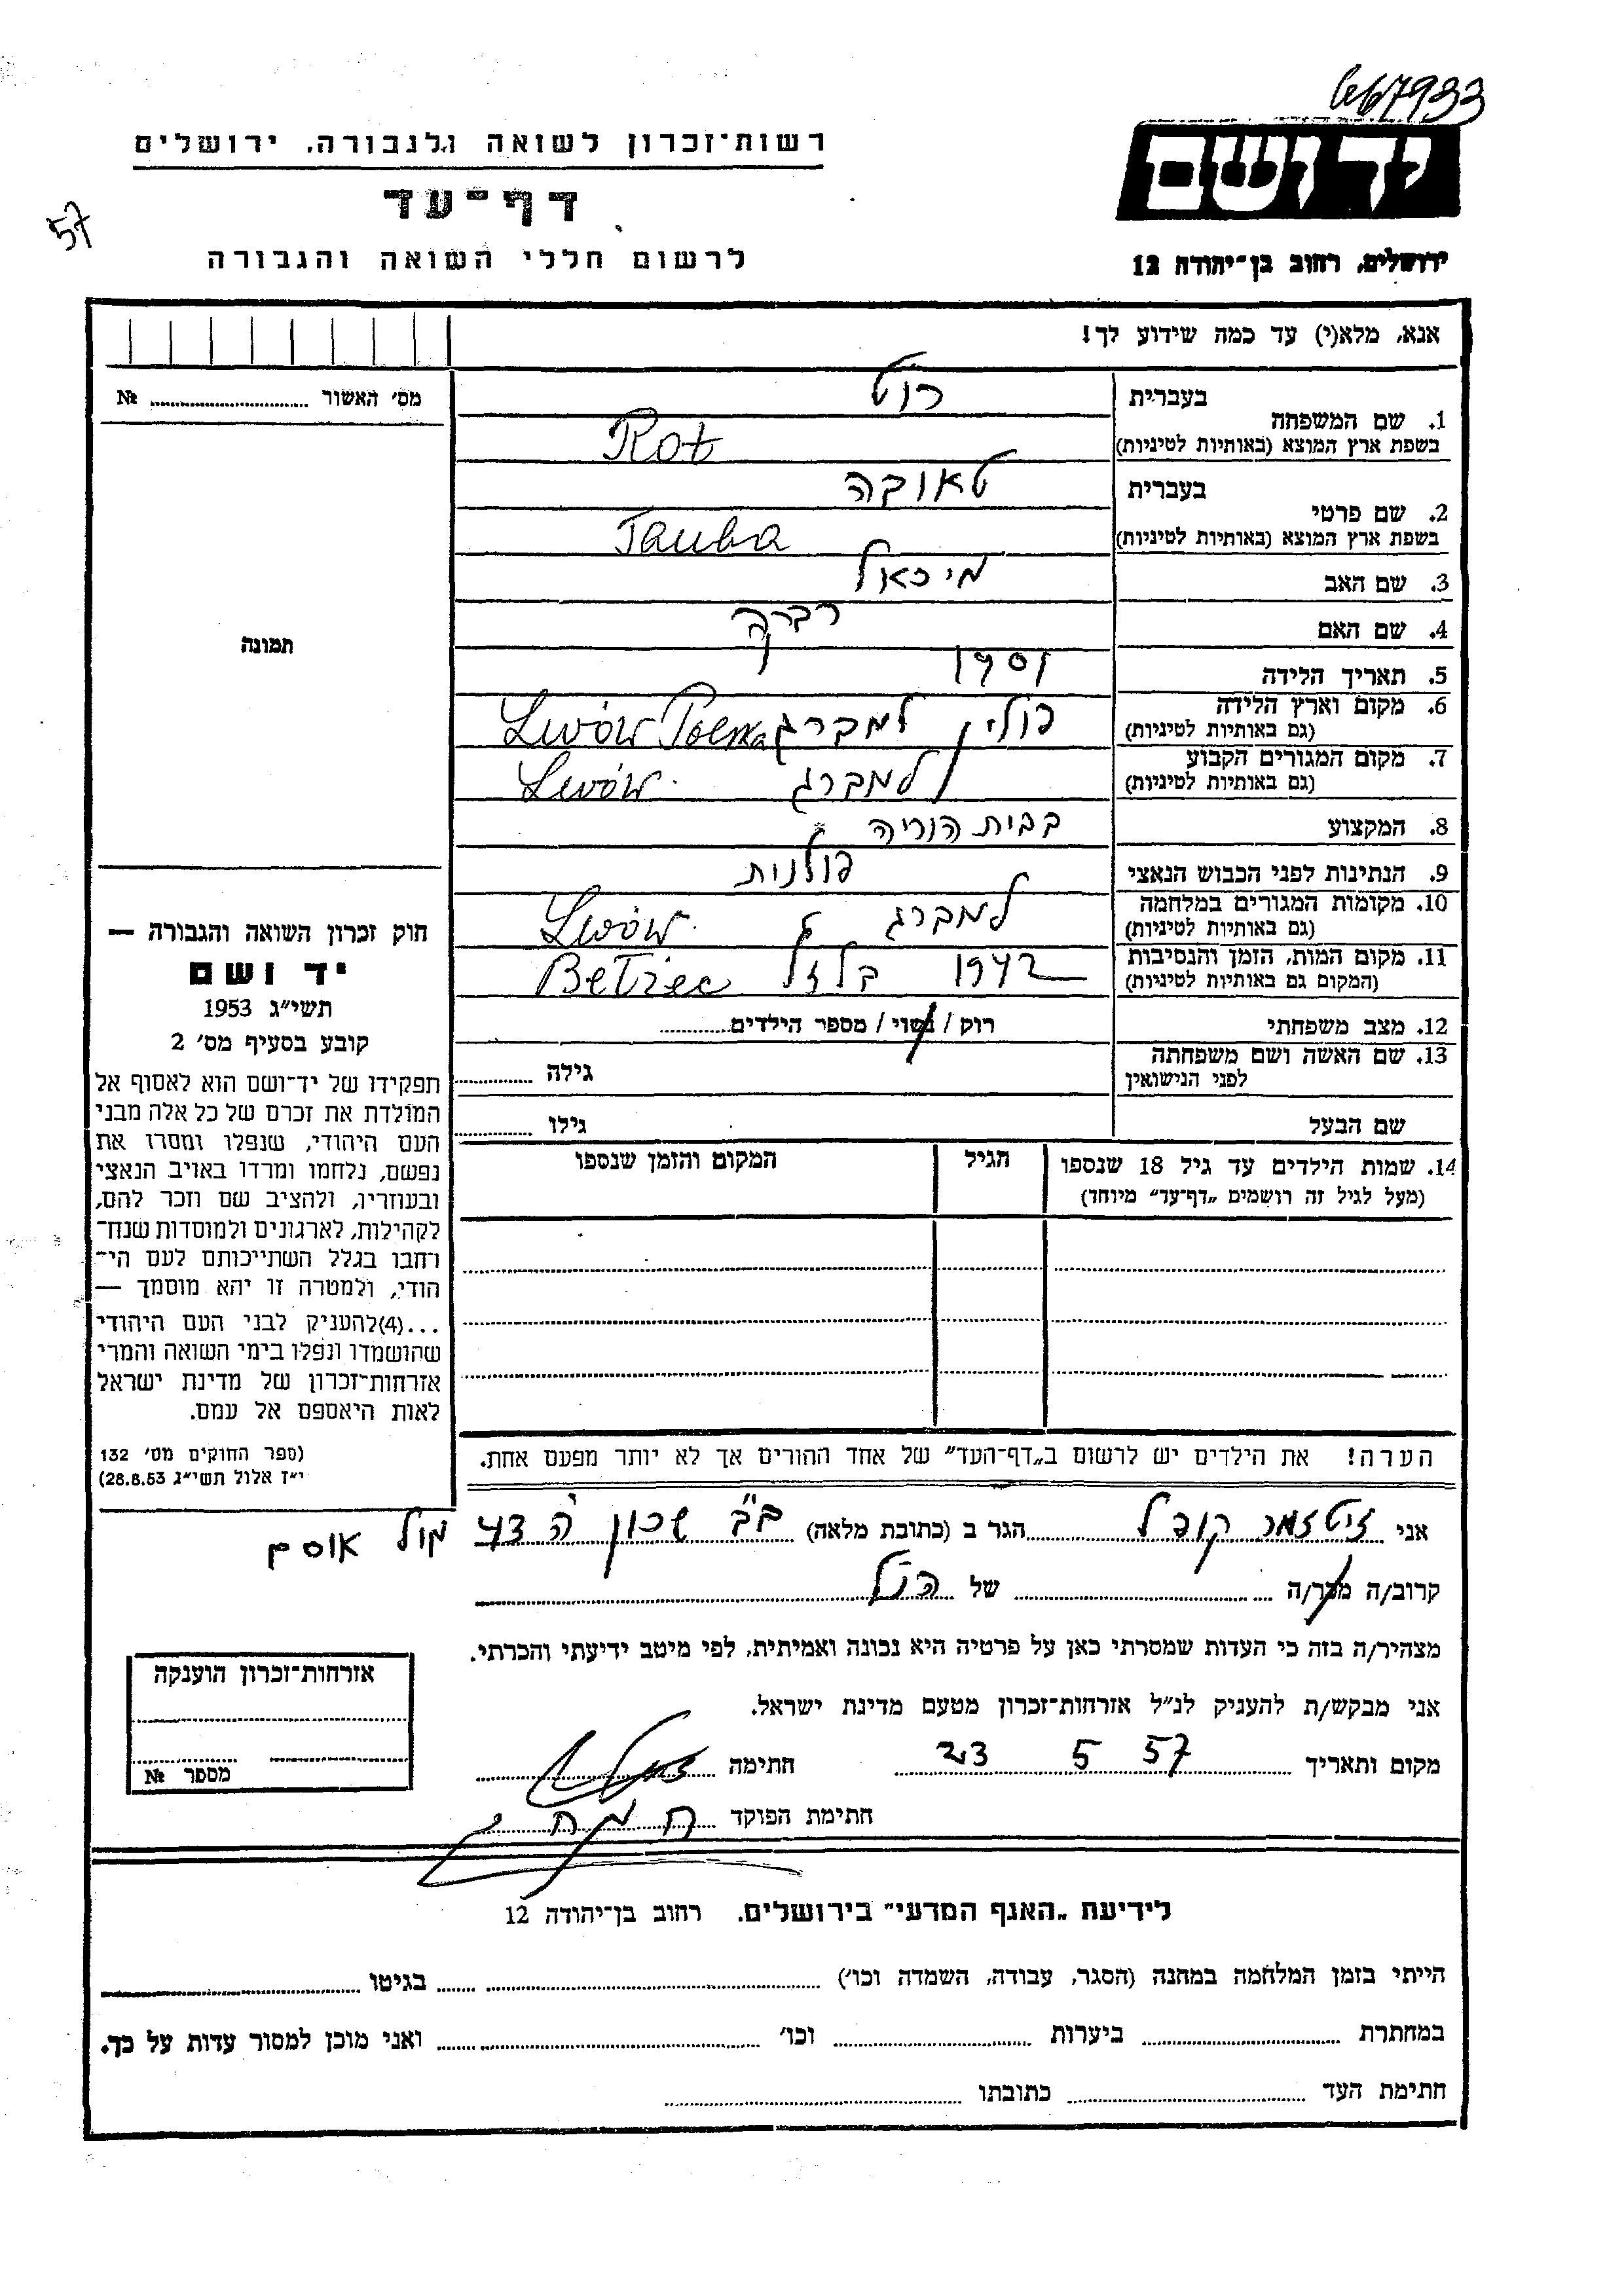 667933
רשות־זכרון לשואה ולגבורה. ירושלים
יד ושם
דף־עד
57
לרשום חללי השואה והגבורה
ירושלים, רחוב בן־יהודה 12
אנא, מלא(י) עד כמה שידוע לך!
מס׳ האשור № 
תמונה
1. שם המשפחה בעברית רוט
בשפת ארץ המוצא (באותיות לטיניות) Rot
2. שם פרטי בעברית טאובה
בשפת ארץ המוצא (באותיות לטיניות) Tauba
3. שם האב מיכאל
4. שם האם רבקה
5. תאריך הלידה
6. מקום וארץ הלידה (גם באותיות לטיניות) פולין למברג Lwów
7. מקום המגורים הקבוע (גם באותיות לטיניות) למברג Lwów
8. המקצוע בבית הוריה
9. הנתינות לפני הכבוש הנאצי פולנית
10. מקומות המגורים במלחמה (גם באותיות לטיניות) למברג Lwów
11. מקום המות, הזמן והנסיבות (המקום גם באותיות לטיניות) 1942
12. מצב משפחתי רוק / נשוי / מספר הילדים
13. שם האשה ושם משפחתה לפני הנישואין גילה
שם הבעל גילו
14. שמות הילדים עד גיל 18 שנספו הגיל המקום והזמן שנספו
(מעל לגיל זה רושמים „דף־עד” מיוחד)
הערה! את הילדים יש לרשום ב„דף־העד” של אחד ההורים אך לא יותר מפעם אחת.
חוק זכרון השואה והגבורה —
יד ושם
תשי״ג 1953
קובע בסעיף מס׳ 2
תפקידו של יד־ושם הוא לאסוף אל
המולדת את זכרם של כל אלה מבני
העם היהודי, שנפלו ומסרו את
נפשם, נלחמו ומרדו באויב הנאצי
ובעוזריו, ולהציב שם וזכר להם,
לקהילות, לארגונים ולמוסדות שנח־
רחבו בגלל השתייכותם לעם הי־
הודי, ולמטרה זו יהא מוסמך —
...(4)להעניק לבני העם היהודי
שהושמדו ונפלו בימי השואה והמרי
אזרחות־זכרון של מדינת ישראל
לאות היאספם אל עמם.
(ספר החוקים מס׳ 132
י״ז אלול תשי״ג 28.8.53)
אני קופל הגר ב (כתובת מלאה) ב״ב שכון ה׳ מול אוסם
קרוב/ה מכר/ה של
מצהיר/ה בזה כי העדות שמסרתי כאן על פרטיה היא נכונה ואמיתית, לפי מיטב ידיעתי והכרתי.
אני מבקש/ת להעניק לנ״ל אזרחות־זכרון מטעם מדינת ישראל.
מקום ותאריך 23 5 57 חתימה
חתימת הפוקד
אזרחות־זכרון הוענקה
מספר №
לידיעת „האגף המדעי” בירושלים. רחוב בן־יהודה 12
הייתי בזמן המלחמה במחנה (הסגר, עבודה, השמדה וכו׳) בגיטו
במחתרת ביערות וכו׳ ואני מוכן למסור עדות על כך.
חתימת העד כתובתו